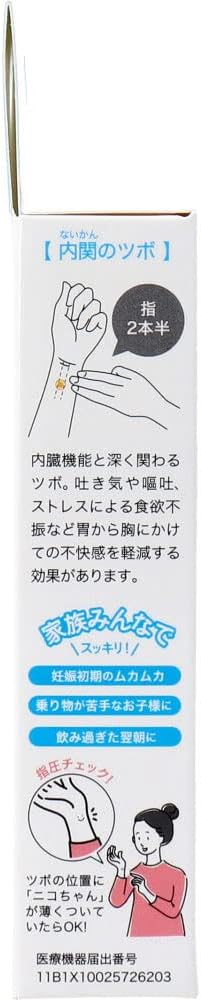 ないかん
【 内関のツボ 】
指
2本半
内臓機能と深く関わる
ツボ。吐き気や嘔吐、
ストレスによる食欲不
振など胃から胸にかけ
ての不快感を軽減する
効果があります。
家族みんなで
\ スッキリ! /
妊娠初期のムカムカ
乗り物が苦手なお子様に
飲み過ぎた翌朝に
指圧チェック!
ツボの位置に
「ニコちゃん」
が薄くついて
いたらOK!
医療機器届出番号
11B1X10025726203